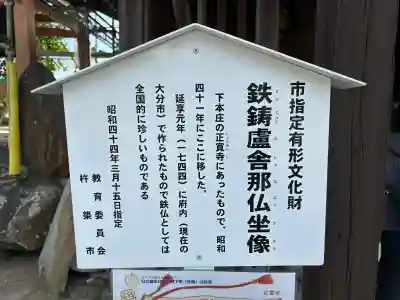 市指定有形文化財
鉄鋳盧舎那仏坐像
下本庄の正覚寺にあったもので、昭和
四十一年にここに移した。
延享元年（一七四四）に府内（現在の
大分市）で作られたもので鉄仏としては
全国的に珍しいものである
昭和四十四年三月十五日指定
教育委員会
杵築市